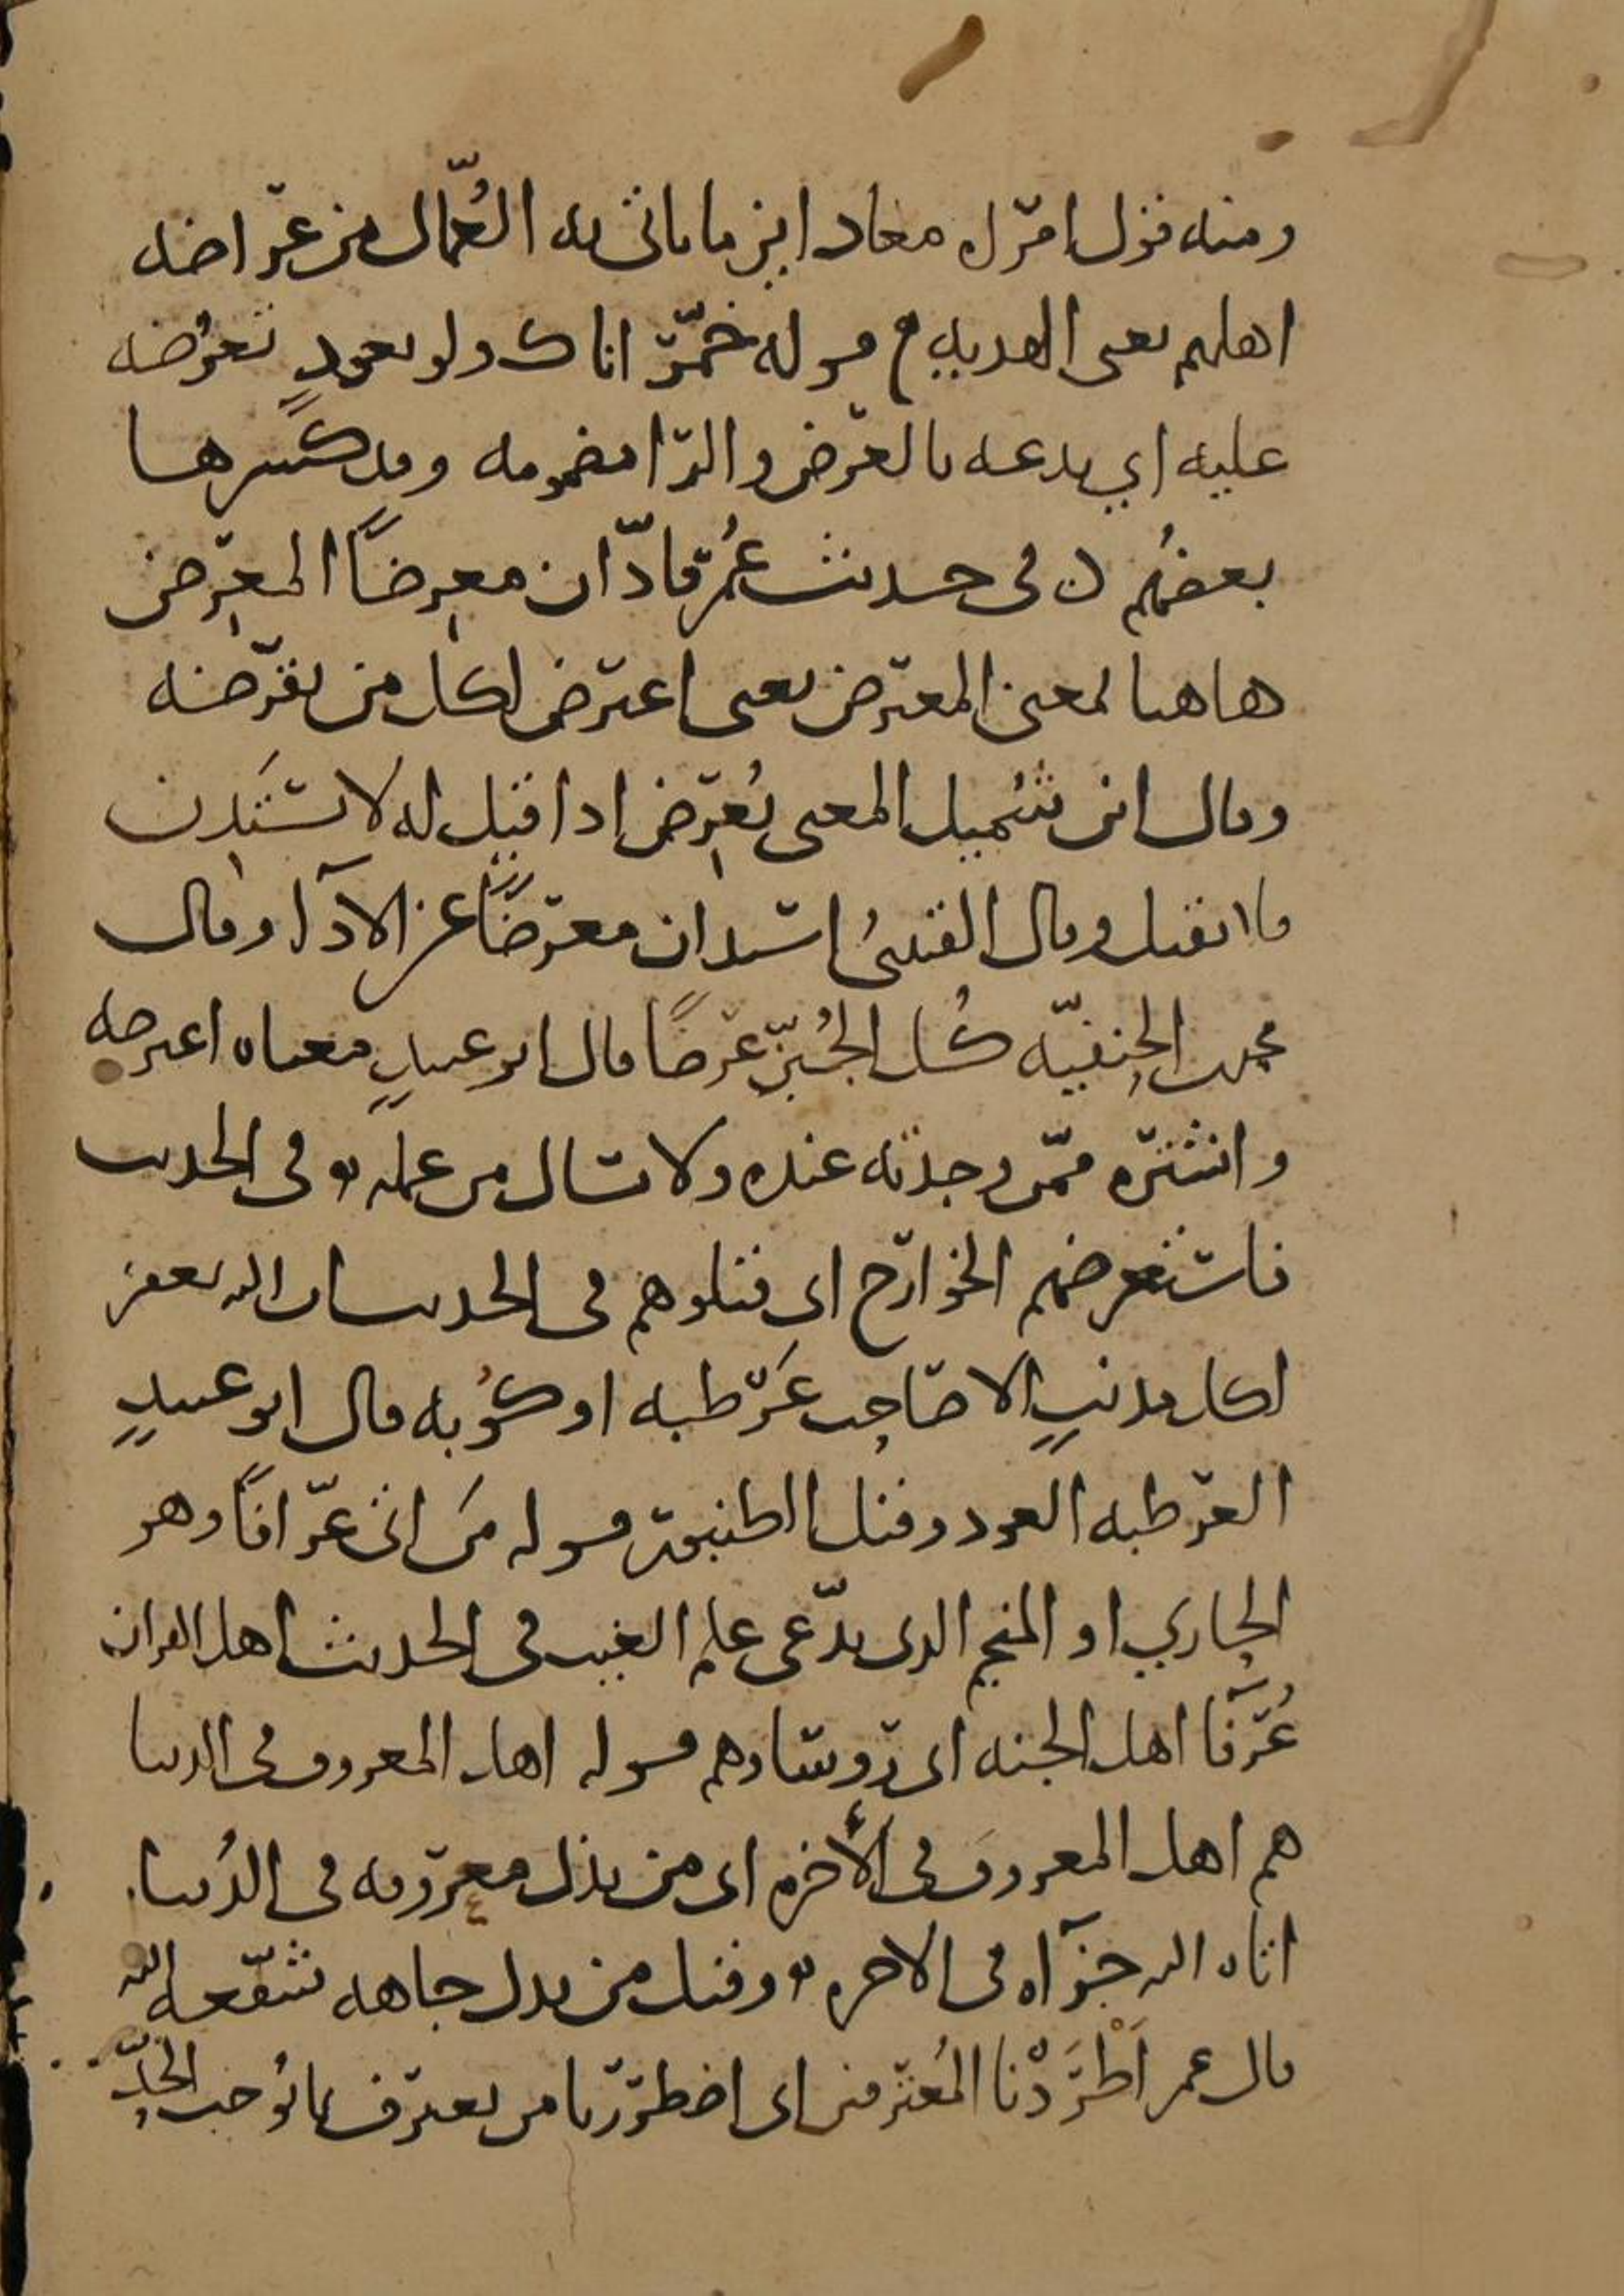 ومنه قول امرأه معاد اين ما ياتى به العُمّال من عراضه
اهلهم يعنى الهديه قوله خمّر اناك ولو بعودٍ تعرُضه
عليه اي يدعه بالعرض والرا مضمومه وقد كسرها
بعضُهم في حديث عُمر فادّان معرِضًا المعرِض
هاهنا لمعنى المعترض يعنى اعترض لكل من يقرضه
وقال ابن شُميل المعنى يُعرِض اذا قيل له لا تستَدِن
فلا يقبل وقال القتيبىُ استدان معرضًا عن الادآ وقال
محمد بن الحنفيّه كُل الجُبنّ عرضًا قال ابو عبيدٍ معناه اعترضه
واشتره ممّن وجدته عنده ولا تسال من عمله وفى الحديث
فاستعرضهم الخوارج اى قتلوهم فى الحديث ان الله يغفر
لكل مدنبٍ الا صاحِب عَرطبه او كُوبه قال ابو عبيدٍ
العرطبه العود وقيل الطنبور قوله مَن اتى عرّافًا وهو
الحازي او المنجم الدى يدّعى علم الغيب فى الحديث اهل القران
عُرَفآ اهل الجنه اى روسادهم قوله اهل المعروف فى الدنيا
هم اهل المعروف فى الأخره اى من بذل معروفه فى الدُنيا
اتاه الله جزآه فى الاخره وقيل من بدل جاهه شفّعه الله
قال عمر اَطْرَدْنا المُعترفين اى اضطررنا من يعترف بما يُوجب الحدِّ